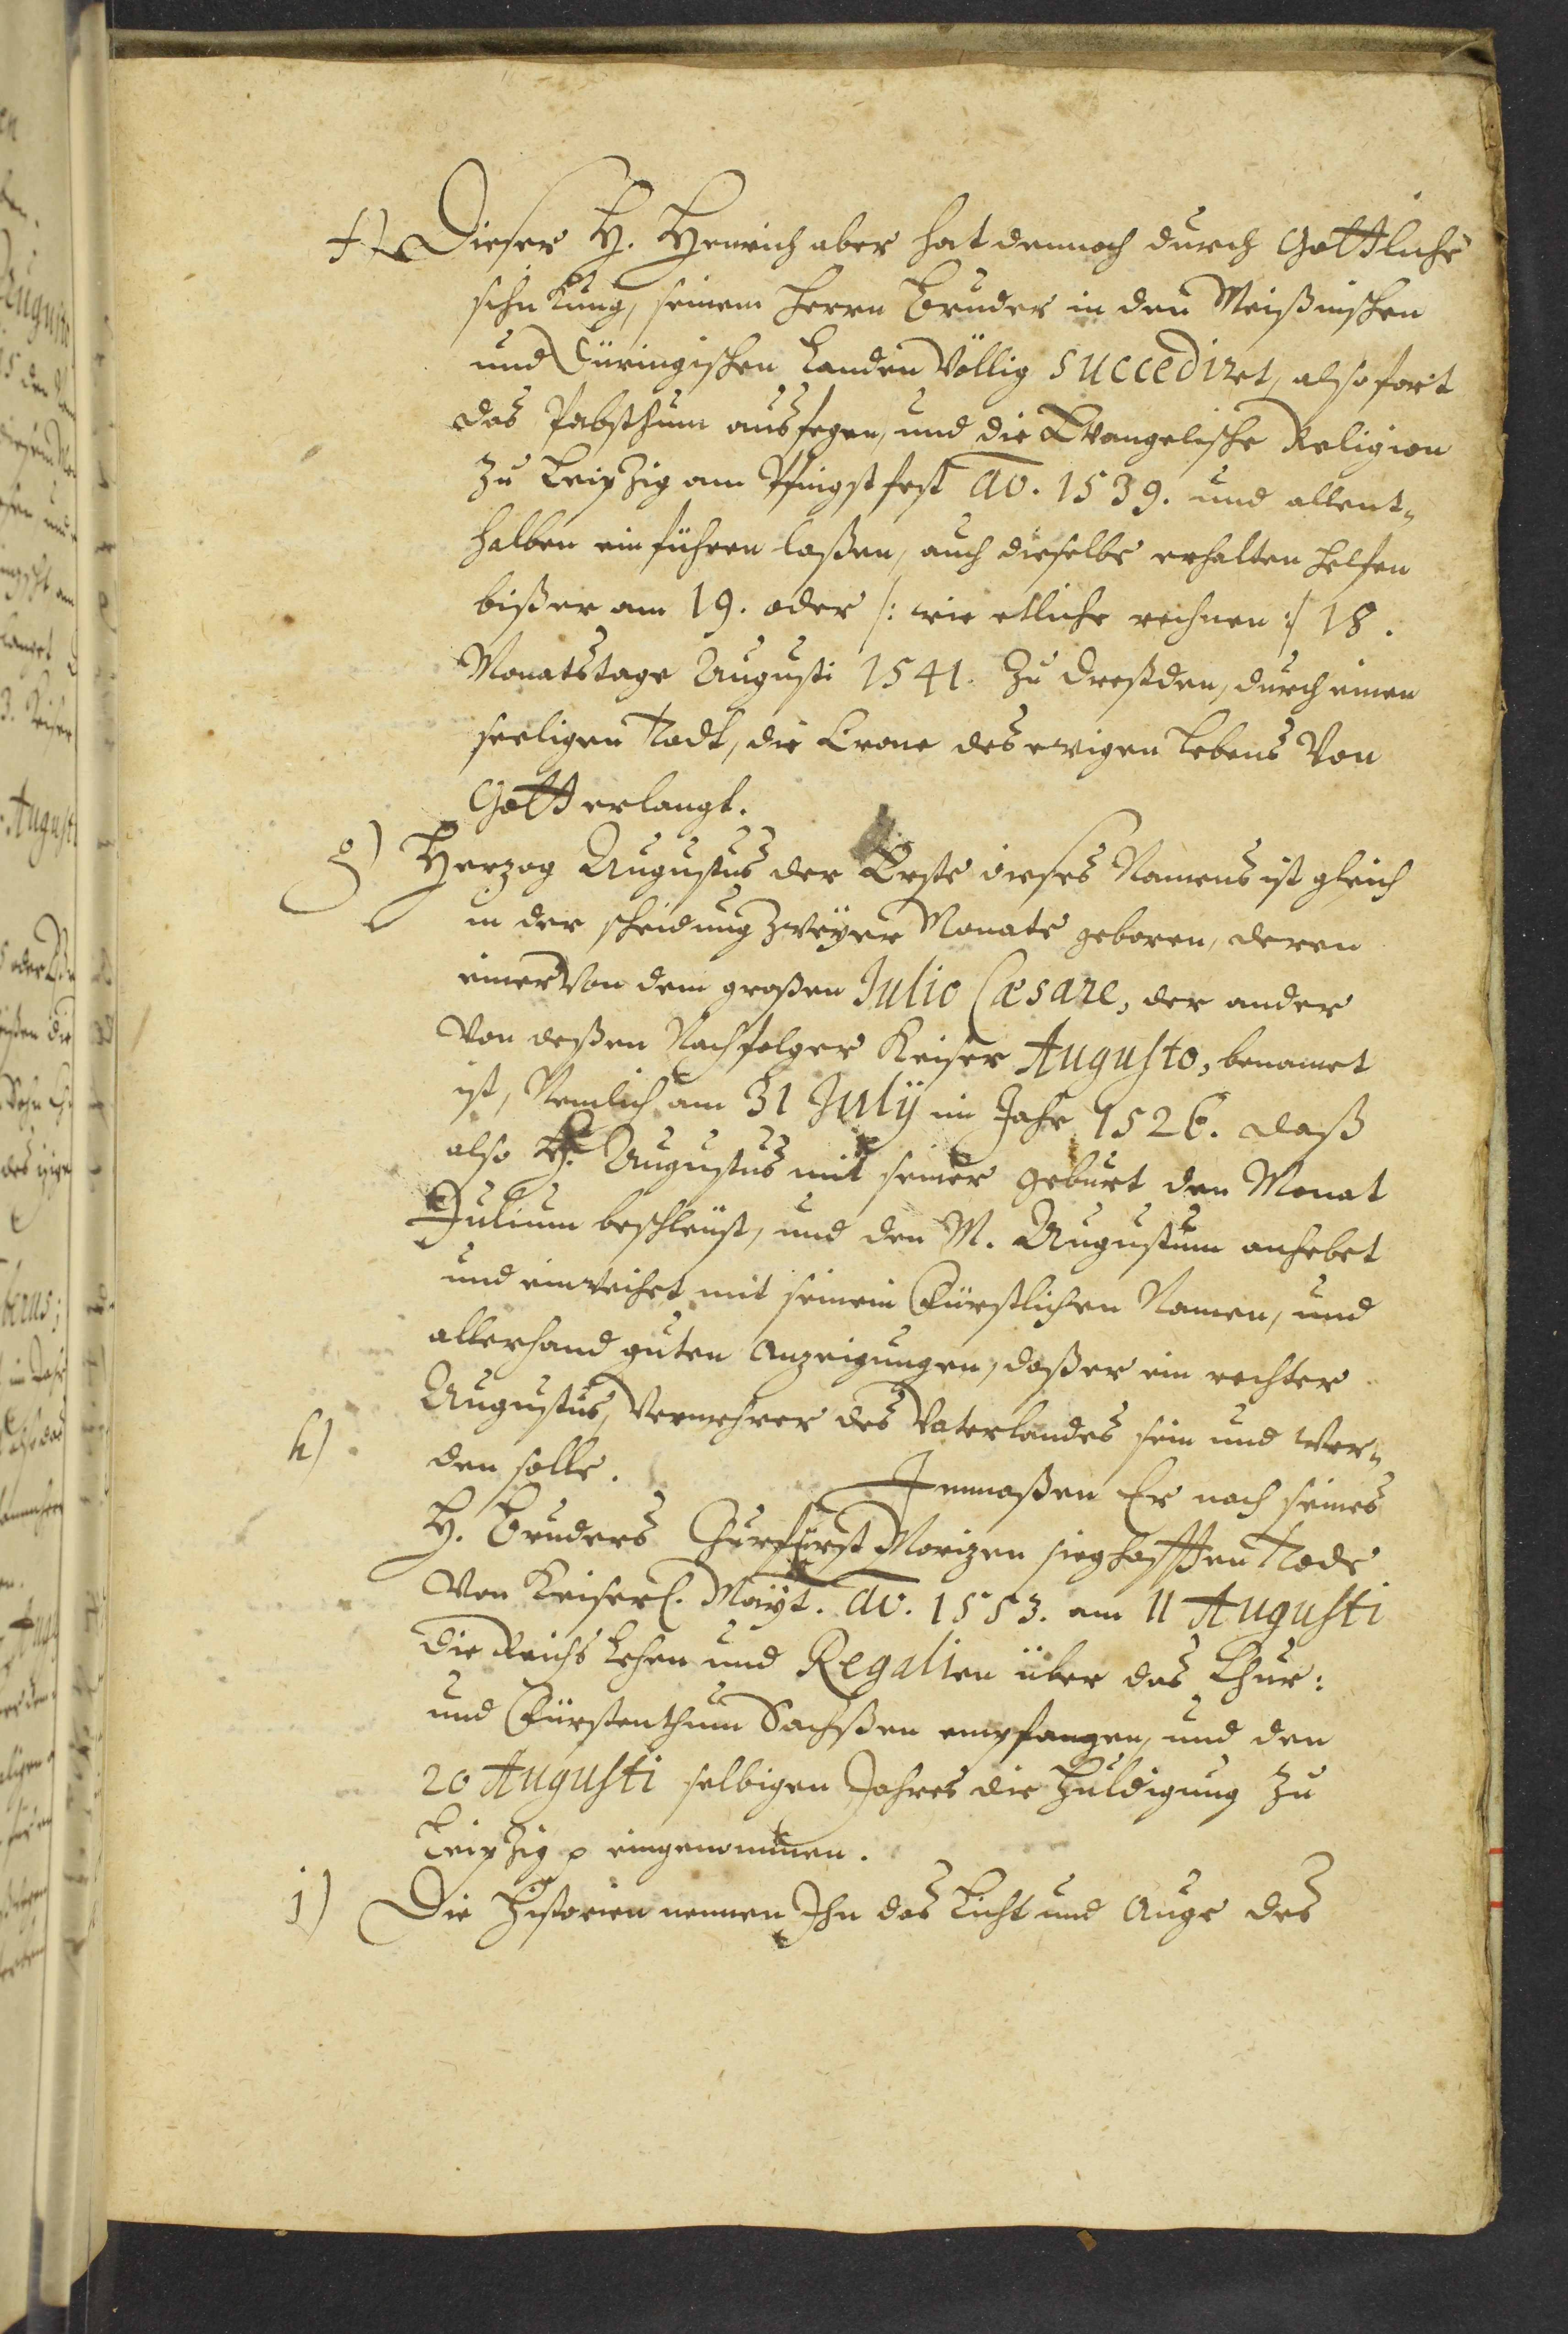 f) Dieser H. Henrich aber hat dennoch durch Gottliche
schickung, seinem Herrn Bruder in den Meißnischen
und Türingischen Landen Völlig succediret, alsofort
das Pabsthum ausfegen, und die Evangelische Religion
zu Leipzig am Pfingstfest ao. 1539. und allent-
halben einführen laßen, auch dieselbe erhalten helfen
bißer am 19. oder /: wie etliche rechnen :/ 18.
Monatstage Augusti 1541. zu Dreßden, durch einen
seeligen Todt, die Crone des ewigen Lebens Von
Gott erlangt.
g) Herzog Augustus der Erste dieses Namens ist gleich
in der scheidung zweyer Monate geboren, deren
einer Von dem großen Julio Cæsare, der ander
Von deßen Nachfolger Keiser Augusto, benamet
ist, Nemlich am 31 Julij im Jahr 1526. daß
also H. Augustus mit seiner geburt den Monat
Julium beschleust, und den M. Augustum anhebet
und einweihet mit seinem Fürstlichen Namen, und
allerhand guten Anzeigungen, daßer ein rechter
Augustus, Vermehrer des Vaterlandes sein und wer-
h) den solle. Inmaßen Er nach seines
H. Bruders Churfürst Morizen sieghafften Tode
Von Keiserl. Mayt. ao. 1553. am 11 Augusti
die Reichs Lehen und Regalien über das Chur:
und Fürstenthum Sachßen empfangen, und den
20 Augusti selbigen Jahres die Huldigung zu
Leipzig eingenommen.
i) Die Historien nennen Ihn das Licht und Auge des